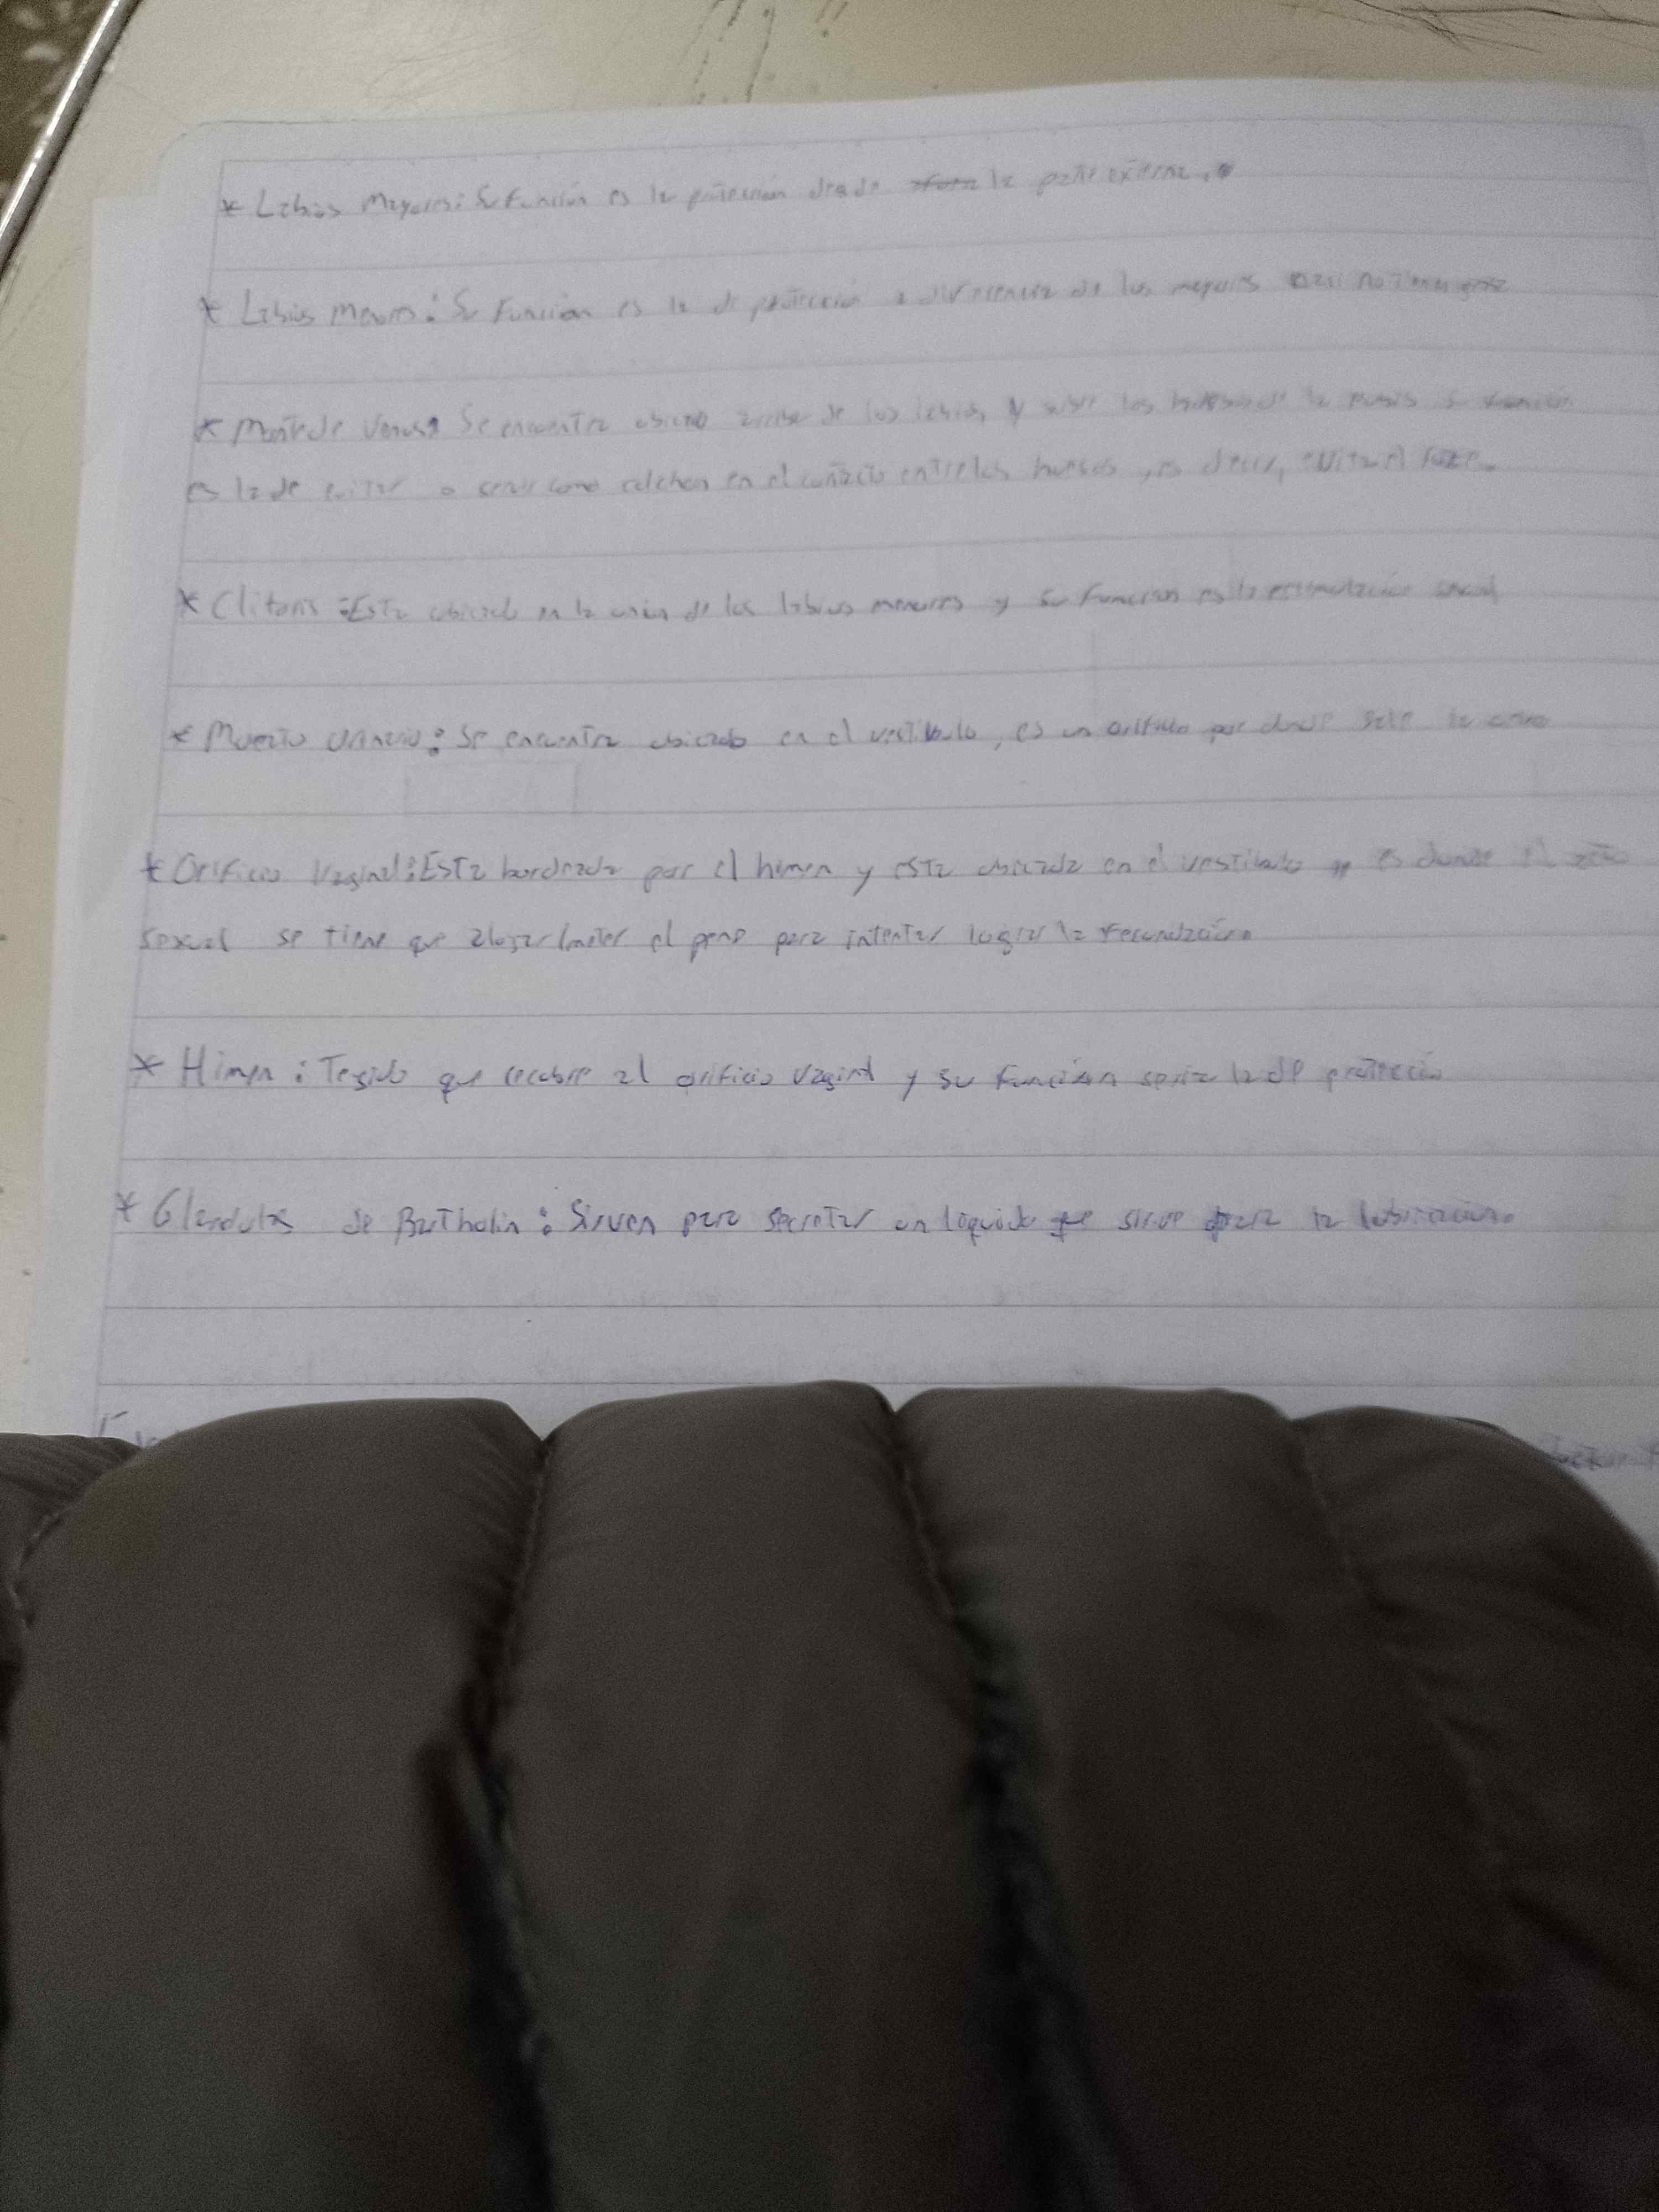 * Labios Mayores: Su función es la protección desde la parte externa.
* Labios Menores: Su función es la de protección a diferencia de los mayores no tienen
* Monte de Venus: Se encuentra ubicado arriba de los labios, y sobre los huesos de la pubis su función
es la de evitar o servir como colchon en el contacto entre los huesos, es decir, evita el roce.
* Clitoris: Esta ubicado en la union de los labios menores y su función es la estimulación sexual
* Muerto urinario: Se encuentra ubicado en el vestibulo, es un orificio por donde sale la orina
* Orificio Vaginal: Esta bordeada por el himen y esta ubicada en el vestibulo es donde el acto
sexual se tiene que alojar/meter el pene para intentar lograr la fecundación.
* Himen: Tegido que recubre al orificio vaginal y su función seria la de protección
* Glandulas de Bartholin: Sirven para secretar un liquido que sirve para la lubricacion.